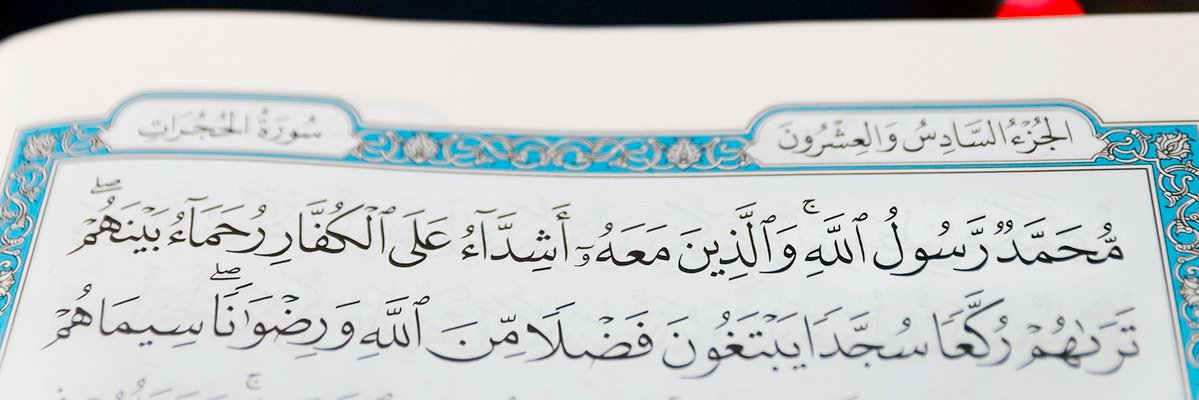 الجُزْءُ السَّادِسُ وَالعِشْرُونَ
سُورَةُ الحُجُرَاتِ
مُّحَمَّدٌ رَّسُولُ ٱللَّهِۚ وَٱلَّذِينَ مَعَهُۥٓ أَشِدَّآءُ عَلَى ٱلْكُفَّارِ رُحَمَآءُ بَيْنَهُمْۖ
تَرَىٰهُمْ رُكَّعًا سُجَّدًا يَبْتَغُونَ فَضْلًا مِّنَ ٱللَّهِ وَرِضْوَٰنًاۖ سِيمَاهُمْ